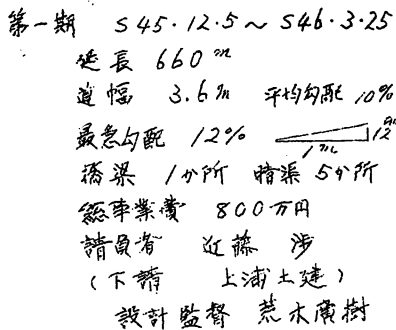 第一期 S45・12・5〜S46・3・25
延長 660m
道幅 3.6m 平均勾配 10%
最急勾配 12% 12cm
1m
橋梁 1か所 暗渠 5か所
総事業費 800万円
請負者 近藤 渉
(下請 上浦土建)
設計監督 荒木廣樹